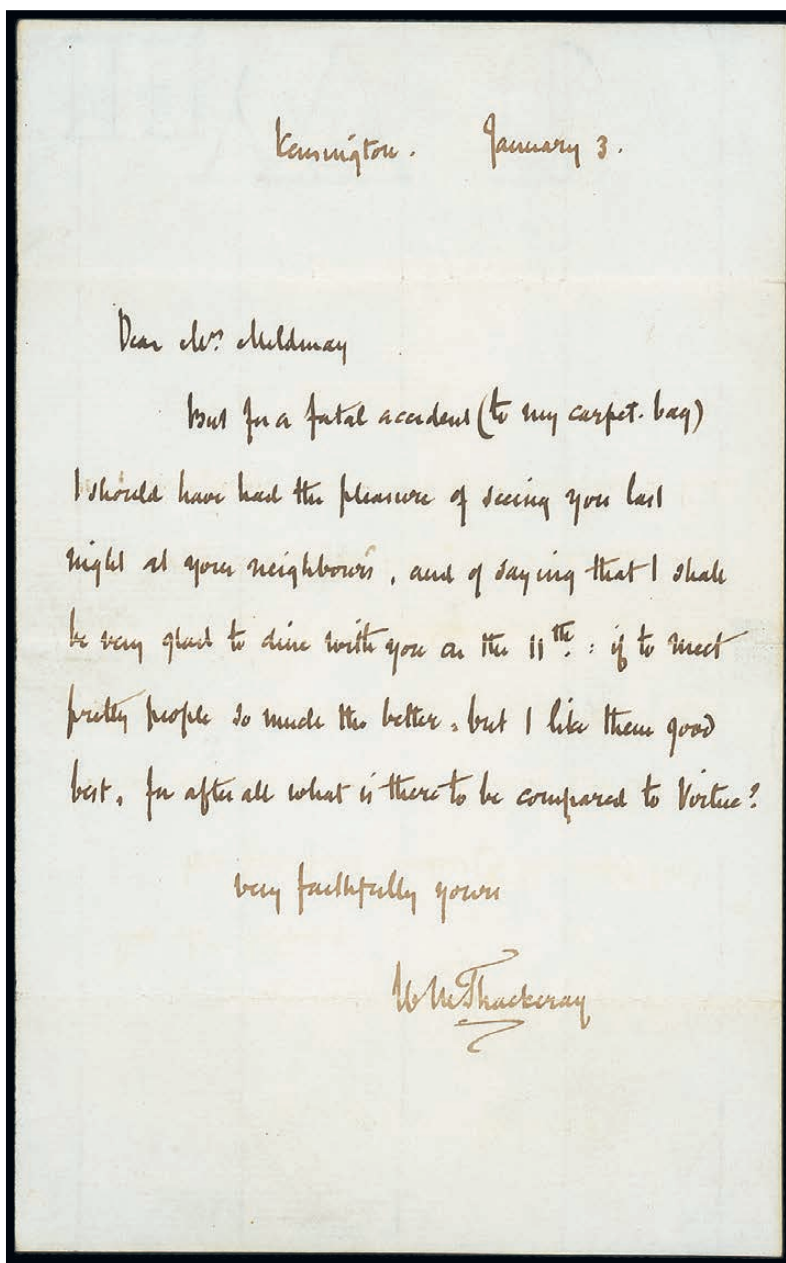 Kensington. January 3.
Dear Mrs. Mildmay
But for a fatal accident (to my carpet-bag)
I should have had the pleasure of seeing you last
night at your neighbours, and of saying that I shall
be very glad to dine with you on the 11th. : if to meet
pretty people so much the better, but I like them good
best, for after all what is there to be compared to Virtue?
very faithfully yours
W M Thackeray